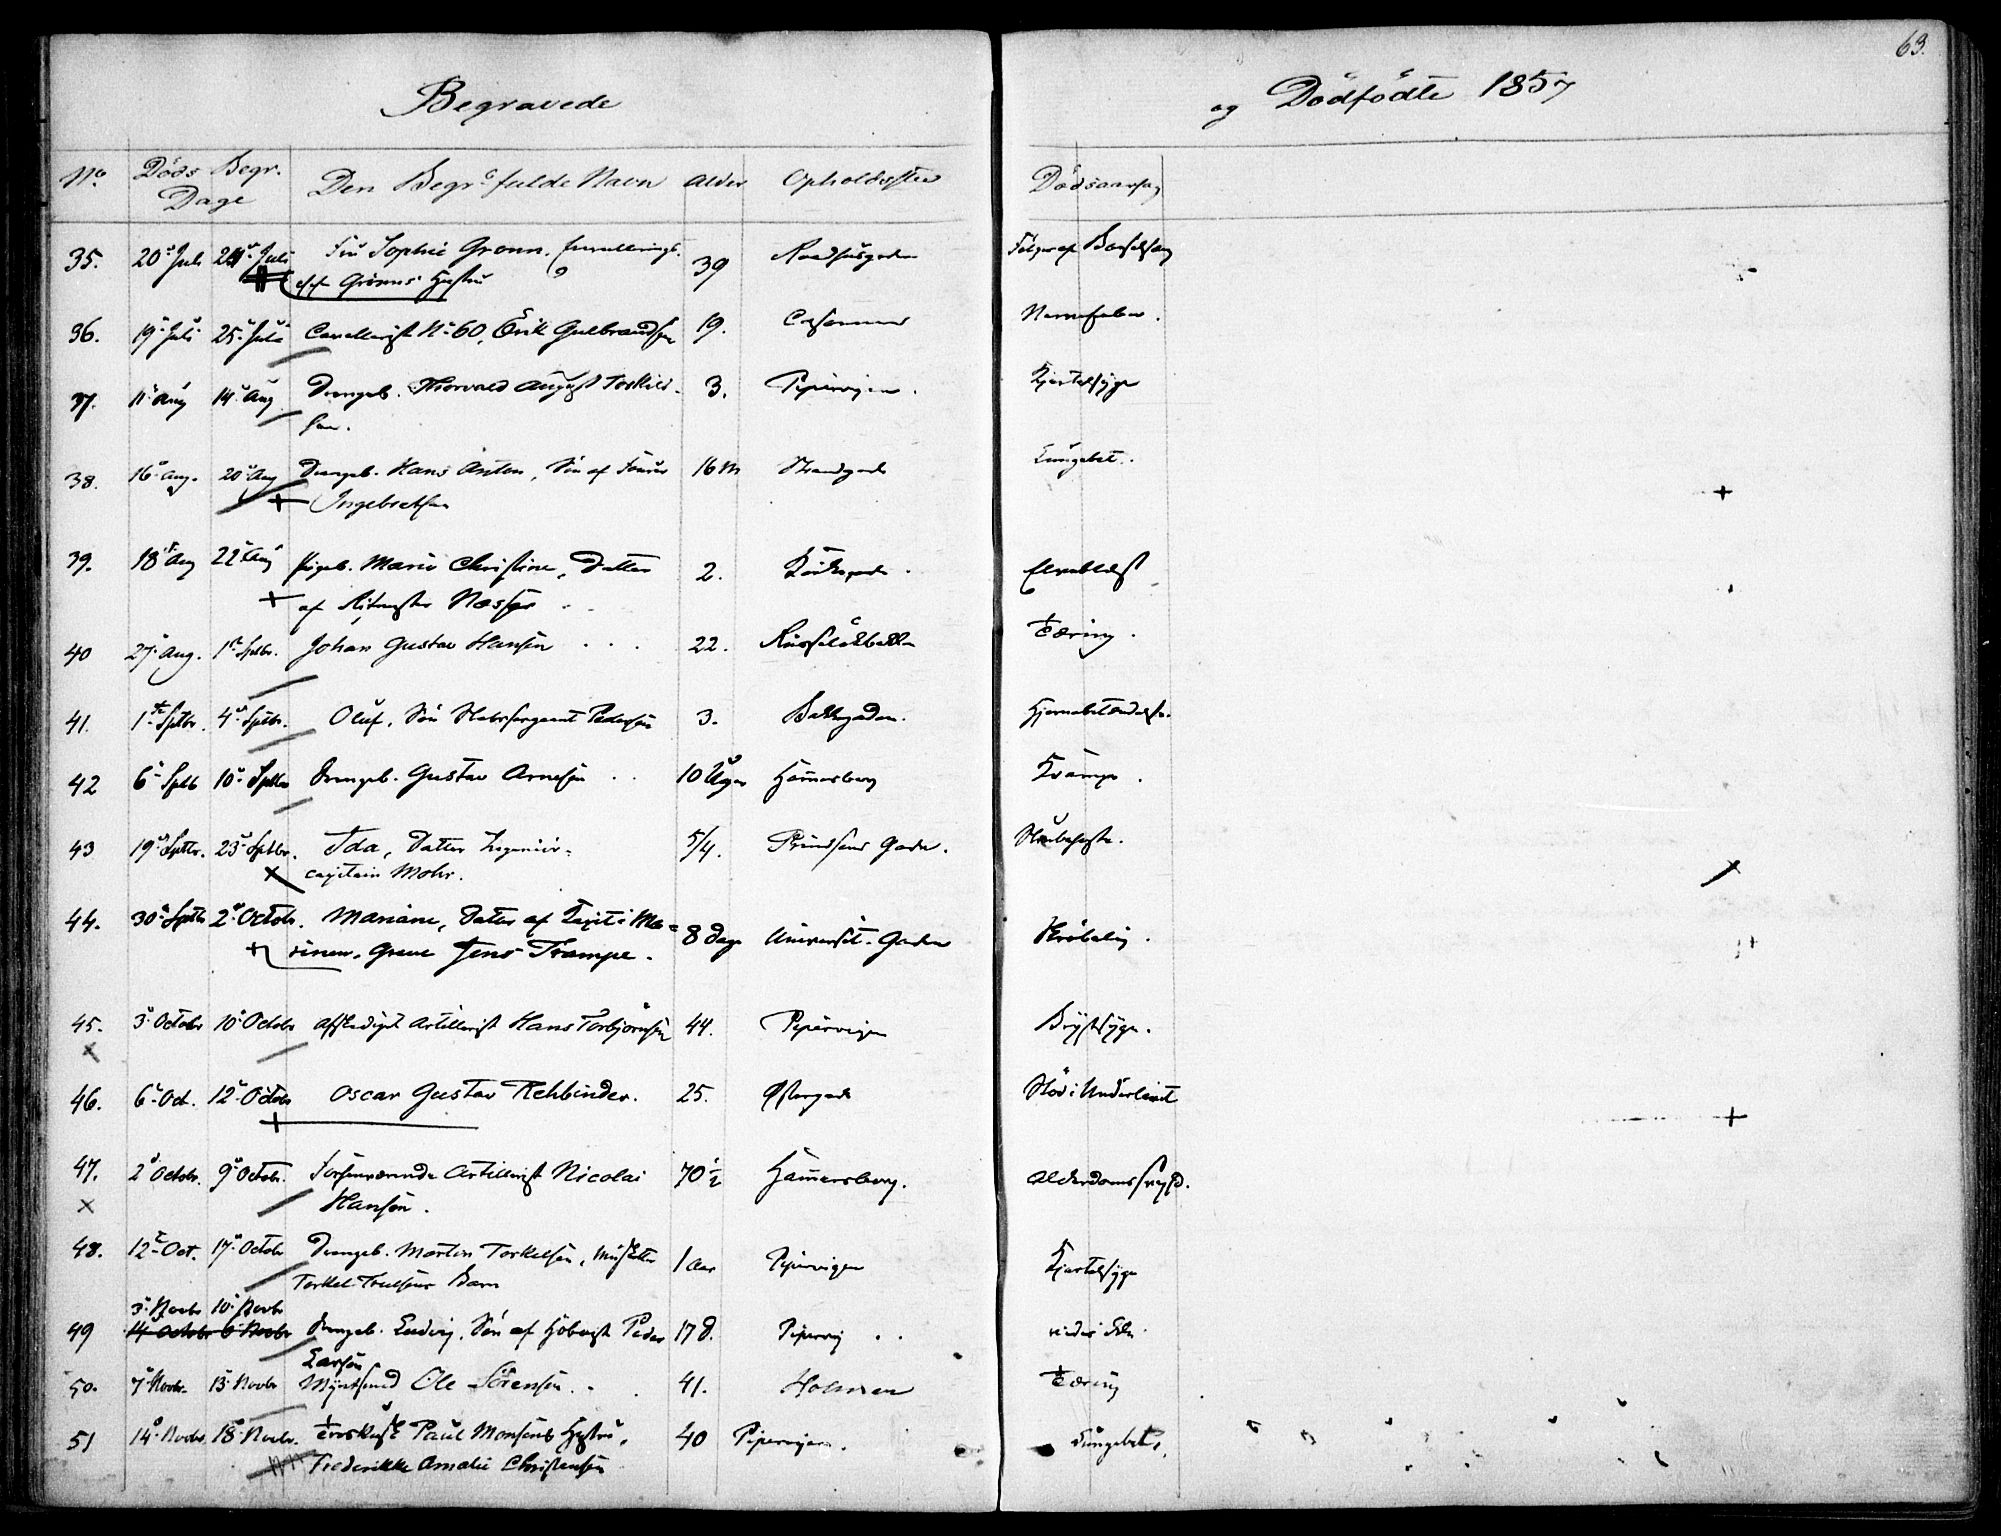 63.
Begravede
og Dödfödte 1857
No. Döds Begr. Dage Den Begr. fulde Navn Alder Opholdssted Dödsaarsag
35. 20. Juli 24. Juli Fru Sophie Grønn, 39 Raadhusgaden Følger af Barselseng
Grønns Hustru
36. 19. Juli 25. Juli Cavallerist No. 60, Erik Gulbrandsen 19. Nervefeber.
37. 11. Aug 14. Aug Drengeb. Thorvald August Torkild- 3. Pipervigen. Kjertelsyge
sen.
38. 16. Aug. 20. Aug Drengeb. Hans Anton, Søn af 16 M Strandgade Lungebet.
Ingebretsen
39. 18. Aug 22. Aug Pigeb. Marie Christine, Datter 2.
af
40 27. Aug. 1. Septbr. Johan Gustav Hansen 22. Tæring.
41. 1ste Septbr. 4. Septbr. Oluf, Søn Stabssergeant Pedersen 3. Bakkegaden. Hjernebetændelse.
42 6. Septb 10. Septbr Drengeb. Gustav Arnesen 10 Uger Hammersborg Krampe.
43 19. Septbr. 23. Septbr. Ida, Datter Ingeniör- 5/4. Prindsens Gade. Strubehoste.
capitain Mohr.
44. 30. Septb 2. Octob. Mariane, Datter af Capt. i Ma- 8 Dage Universit. Gaden
rinen, Greve Jens Trampe.
45. 3. Octobr 10. Octobr afskediget Artillerist Hans Torbjörnsen 44. Pipervigen Brystsyge.
46. 6. Oct. 12. Octobr Oscar Gustav Rehbinder. 25. Østergade Stöd i Underlivet
47. 2. Octobr. 9. Octob. Forhenværende Artillerist Nicolai 70 1/2 Hammersborg. Alderdomssvagh.
Hansen.
48. 12. Oct. 17. Octobr Drengeb. Martin Torkelsen, Musketer 1 Aar Pipervigen Kjertelsyge
Torkel Trulsens Barn
3. Novbr 10. Novbr
49 14. Octobr 6. Novbr Drengeb. Ludvig, Søn af Peder 17 D. Pipervig
Larsen
50. 7. Novbr. 13. Novbr Myntsmed Ole Sørensen 41. Holmen Tæring
51 14. Novbr. 18. Novbr. Paul Monsens Hustru, 40 Pipervigen. Lungebet.
Frederikke Amalie Christensen